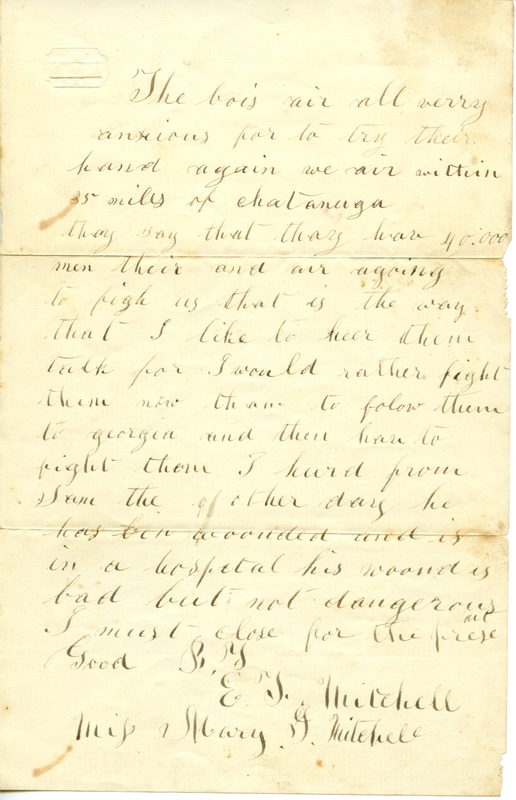 The bois air all verry
anxious for to try their
hand again we air within
35 miles of chatanuga
thay say that thay hav 40.000
men their and air agoing
to figh us that is the way
that I like to heer them
talk for I would rather fight
them now tham to folow them
to georgia and then hav to
fight them I hurd from
Sam the other day he
has bin woonded and is
in a hospetal his woond is
bad but not dangerous
I must close for the prese
ant
Good B.Y
E. T. Mitchell
Miss Mary J. Mitchell